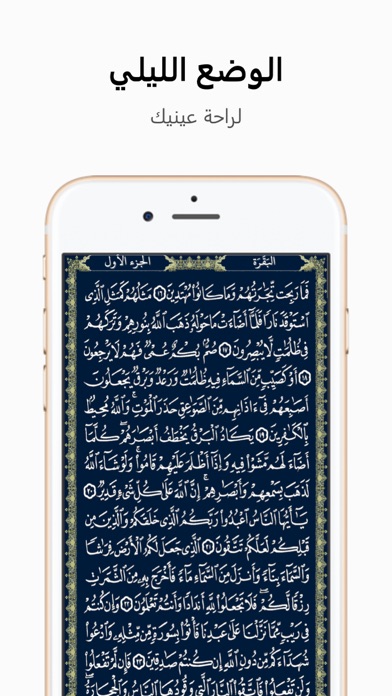 الوضع الليلي
لراحة عينيك
البَقَرَة الجزء الأول
فَمَا رَبِحَت تِّجَٰرَتُهُمْ وَمَا كَانُوا۟ مُهْتَدِينَ ١٦ مَثَلُهُمْ كَمَثَلِ ٱلَّذِى
ٱسْتَوْقَدَ نَارًا فَلَمَّآ أَضَآءَتْ مَا حَوْلَهُۥ ذَهَبَ ٱللَّهُ بِنُورِهِمْ وَتَرَكَهُمْ
فِى ظُلُمَٰتٍ لَّا يُبْصِرُونَ ١٧ صُمٌّۢ بُكْمٌ عُمْىٌ فَهُمْ لَا يَرْجِعُونَ
١٨ أَوْ كَصَيِّبٍ مِّنَ ٱلسَّمَآءِ فِيهِ ظُلُمَٰتٌ وَرَعْدٌ وَبَرْقٌ يَجْعَلُونَ
أَصَٰبِعَهُمْ فِىٓ ءَاذَانِهِم مِّنَ ٱلصَّوَٰعِقِ حَذَرَ ٱلْمَوْتِ ۚ وَٱللَّهُ مُحِيطٌۢ
بِٱلْكَٰفِرِينَ ١٩ يَكَادُ ٱلْبَرْقُ يَخْطَفُ أَبْصَٰرَهُمْ ۖ كُلَّمَآ
أَضَآءَ لَهُم مَّشَوْا۟ فِيهِ وَإِذَآ أَظْلَمَ عَلَيْهِمْ قَامُوا۟ ۚ وَلَوْ شَآءَ ٱللَّهُ
لَذَهَبَ بِسَمْعِهِمْ وَأَبْصَٰرِهِمْ ۚ إِنَّ ٱللَّهَ عَلَىٰ كُلِّ شَىْءٍ قَدِيرٌ ٢٠
يَٰٓأَيُّهَا ٱلنَّاسُ ٱعْبُدُوا۟ رَبَّكُمُ ٱلَّذِى خَلَقَكُمْ وَٱلَّذِينَ مِن
قَبْلِكُمْ لَعَلَّكُمْ تَتَّقُونَ ٢١ ٱلَّذِى جَعَلَ لَكُمُ ٱلْأَرْضَ فِرَٰشًا
وَٱلسَّمَآءَ بِنَآءً وَأَنزَلَ مِنَ ٱلسَّمَآءِ مَآءً فَأَخْرَجَ بِهِۦ مِنَ ٱلثَّمَرَٰتِ
رِزْقًا لَّكُمْ ۖ فَلَا تَجْعَلُوا۟ لِلَّهِ أَندَادًا وَأَنتُمْ تَعْلَمُونَ ٢٢ وَإِن كُنتُمْ
فِى رَيْبٍ مِّمَّا نَزَّلْنَا عَلَىٰ عَبْدِنَا فَأْتُوا۟ بِسُورَةٍ مِّن مِّثْلِهِۦ وَٱدْعُوا۟
شُهَدَآءَكُم مِّن دُونِ ٱللَّهِ إِن كُنتُمْ صَٰدِقِينَ ٢٣ فَإِن لَّمْ تَفْعَلُوا۟
وَلَن تَفْعَلُوا۟ فَٱتَّقُوا۟ ٱلنَّارَ ٱلَّتِى وَقُودُهَا ٱلنَّاسُ وَٱلْحِجَارَةُ ۖ